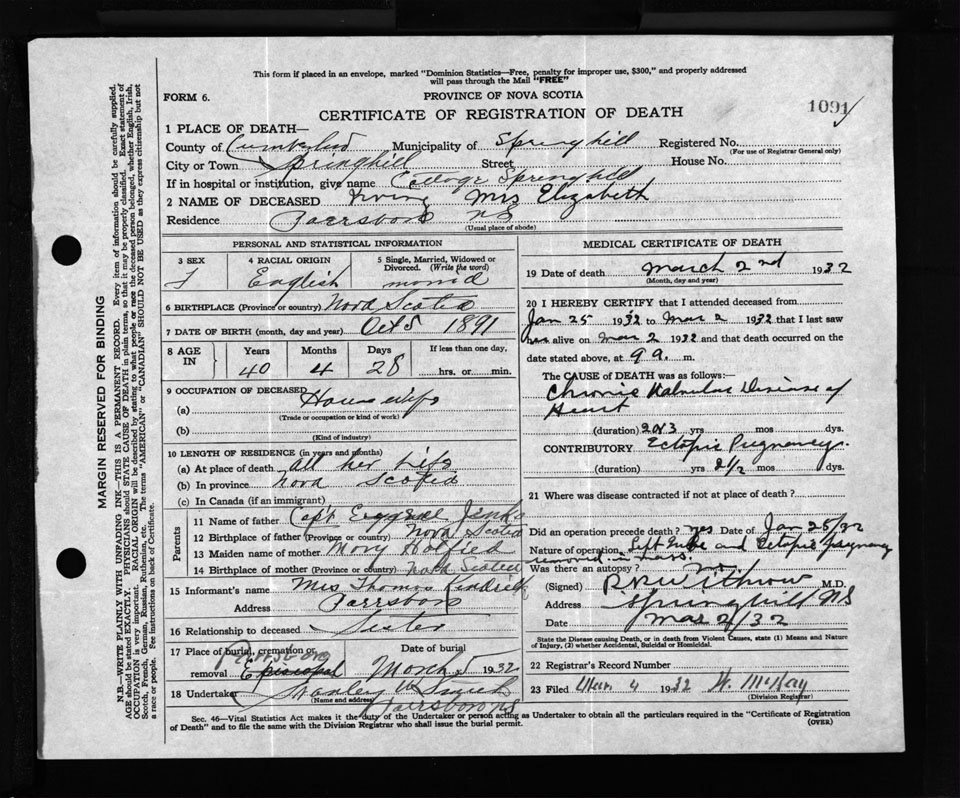 This form if placed in an envelope, marked "Dominion Statistics—Free, penalty for improper use, $300," and properly addressed
will pass through the Mail "FREE"
FORM 6.
PROVINCE OF NOVA SCOTIA
1091
CERTIFICATE OF REGISTRATION OF DEATH
1 PLACE OF DEATH—
County of Cumberland Municipality of Springhill Registered No.
(For use of Registrar General only)
City or Town Springhill Street House No.
If in hospital or institution, give name Springhill
2 NAME OF DECEASED Irving Mrs Elizabeth
Residence Parrsboro NS
(Usual place of abode)
PERSONAL AND STATISTICAL INFORMATION
3 SEX 4 RACIAL ORIGIN 5 Single, Married, Widowed or
Divorced. (Write the word)
F English married
6 BIRTHPLACE (Province or country) Nova Scotia
7 DATE OF BIRTH (month, day and year) Oct 5 1891
8 AGE IN Years Months Days If less than one day,
40 4 28 hrs. or min.
9 OCCUPATION OF DECEASED
(a) Housewife
(Trade or occupation or kind of work)
(b)
(Kind of industry)
10 LENGTH OF RESIDENCE (in years and months)
(a) At place of death All her life
(b) In province Nova Scotia
(c) In Canada (if an immigrant)
Parents
11 Name of father Capt Jenks
12 Birthplace of father (Province or country) Nova Scotia
13 Maiden name of mother Mary Hatfield
14 Birthplace of mother (Province or country) Nova Scotia
15 Informant's name Mrs Thomas Kendrick
Address Parrsboro
16 Relationship to deceased Sister
17 Place of burial, cremation or
removal Parrsboro Episcopal
Date of burial
March 5 1932
18 Undertaker Stanley W Smith
(Name and address) Parrsboro NS
MEDICAL CERTIFICATE OF DEATH
19 Date of death March 2nd 1932
(Month, day and year)
20 I HEREBY CERTIFY that I attended deceased from
Jan 25 1932 to Mar 2 1932 that I last saw
her alive on Mar 2 1932 and that death occurred on the
date stated above, at 9 a. m.
The CAUSE OF DEATH was as follows:—
Chronic Valvular Disease of
Heart
(duration) 2 or 3 yrs mos dys.
CONTRIBUTORY Ectopic Pregnancy.
(duration) yrs 2 1/2 mos dys.
21 Where was disease contracted if not at place of death?
Did an operation precede death? yes Date of Jan 25/32
Nature of operation Left tube and Ectopic pregnancy
removed
Was there an autopsy? no
(Signed) Withrow M.D.
Address Springhill NS
Date Mar 2/32
State the Disease causing Death, or in death from Violent Causes, state (1) Means and Nature
of Injury, (2) whether Accidental, Suicidal or Homicidal.
22 Registrar's Record Number
23 Filed Mar. 4 1932 W. McKay
(Division Registrar)
Sec. 46—Vital Statistics Act makes it the duty of the Undertaker or person acting as Undertaker to obtain all the particulars required in the "Certificate of Registration
of Death" and to file the same with the Division Registrar who shall issue the burial permit.
(OVER)
MARGIN RESERVED FOR BINDING
N.B.—WRITE PLAINLY WITH UNFADING INK—THIS IS A PERMANENT RECORD. Every item of information should be carefully supplied.
AGE should be stated EXACTLY. PHYSICIANS should STATE CAUSE OF DEATH in plain terms, so that it may be properly classified. Exact statement of
OCCUPATION is very important. RACIAL ORIGIN will be described by stating to what people or race the deceased person belonged, whether English, Irish,
Scotch, French, German, Russian, Ruthenian, etc. The terms "AMERICAN" or "CANADIAN" SHOULD NOT BE USED as they express citizenship but not
a race or people. See instructions on back of Certificate.